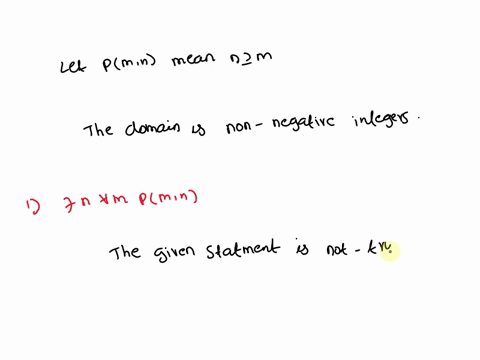 Let P(m,n) mean n≥m
The domain is non-negative integers.
1) ∃n ∀m P(m,n)
The given Statment is not-tr